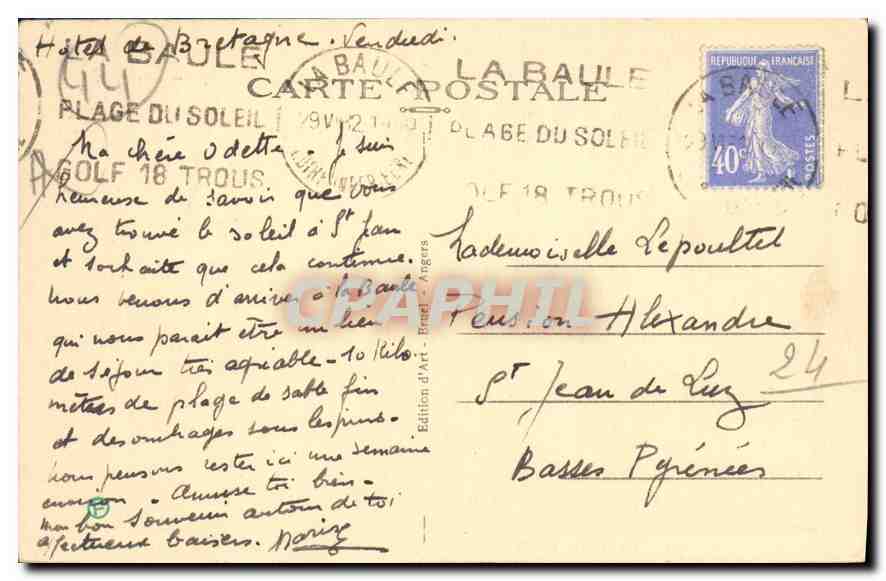 Hôtel de Bretagne. Vendredi.
LA BAULE
PLAGE DU SOLEIL
GOLF 18 TROUS
44
LA BAULE
LOIRE INFER
CARTE POSTALE
LA BAULE
PLAGE DU SOLEIL
GOLF 18 TROUS
LA BAULE
REPUBLIQUE FRANÇAISE
40c
POSTES
Ma chère Odette. Je suis
heureuse de savoir que vous
avez trouvé le soleil à St Jean
et souhaite que cela continue.
Nous venons d'arriver à la Baule
qui nous parait être un lieu
de séjour très agréable - 10 Kilo.
mètres de plage de sable fin
et des ombrages sous les pins.
Nous pensons rester ici une semaine
environ. Amuse toi bien.
mon bon souvenir autour de toi
affectueux baisers.
Edition d'Art - Bruel - Angers
CPAPHIL
Mademoiselle Lepoultel
Pension Alexandre
St Jean de Luz
Basses Pyrénées
24